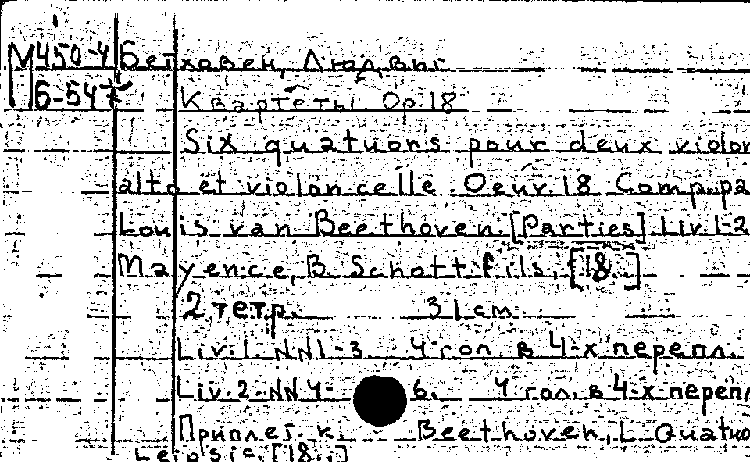 М450-4 Бетховен, Людвиг
Б-547 Квартеты Op.18
Six quatuors pour deux violon
alto et violoncelle. Oeuv.18 Comp.pa
Louis van Beethoven. [Parties] Liv.1-2
Mayence, B. Schott fils, [18..]
2 тетр. 31 см.
Liv.1. NN1-3 4 гол. в 4-х перепл.
Liv.2. NN4-6. 4 гол. в 4-х перепл
Приплет. к. Beethoven, L. Quatuo
Leipsic, [18..]